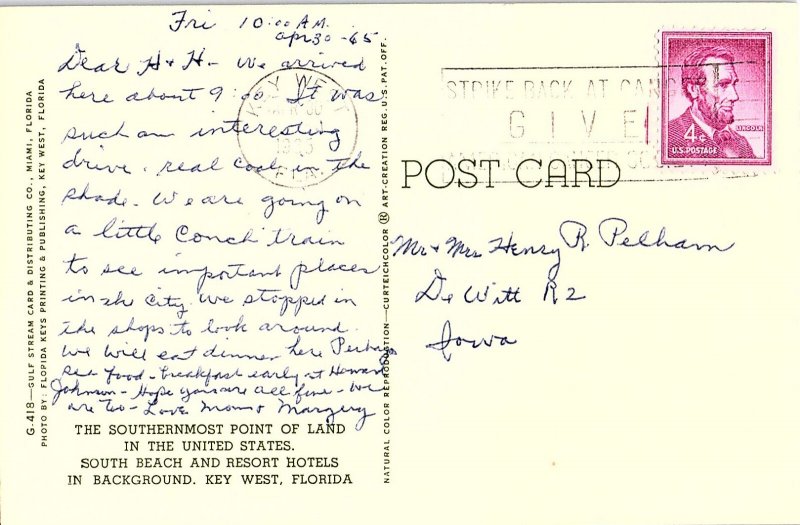 Fri 10:00 A.M.
Apr 30-65
Dear H & H - We arrived
here about 9:00. It was
such an interesting
drive. real cool in the
shade. We are going on
a little Conch train
to see important places
in the City. We stopped in
the shops to look around.
We will eat dinner here Perhaps
sea food - breakfast early at Howard
Johnson - Hope you are all fine - We
are too - Love Mom & Margery
THE SOUTHERNMOST POINT OF LAND
IN THE UNITED STATES.
SOUTH BEACH AND RESORT HOTELS
IN BACKGROUND. KEY WEST, FLORIDA
G-418—GULF STREAM CARD & DISTRIBUTING CO., MIAMI, FLORIDA
PHOTO BY: FLORIDA KEYS PRINTING & PUBLISHING, KEY WEST, FLORIDA
NATURAL COLOR REPRODUCTION—CURTEICHCOLOR ® ART-CREATION REG. U.S. PAT. OFF.
KEY WEST
1965
STRIKE BACK AT CANCER
GIVE
4¢
LINCOLN
U.S. POSTAGE
POST CARD
Mr & Mrs Henry R. Pelham
De Witt R2
Iowa